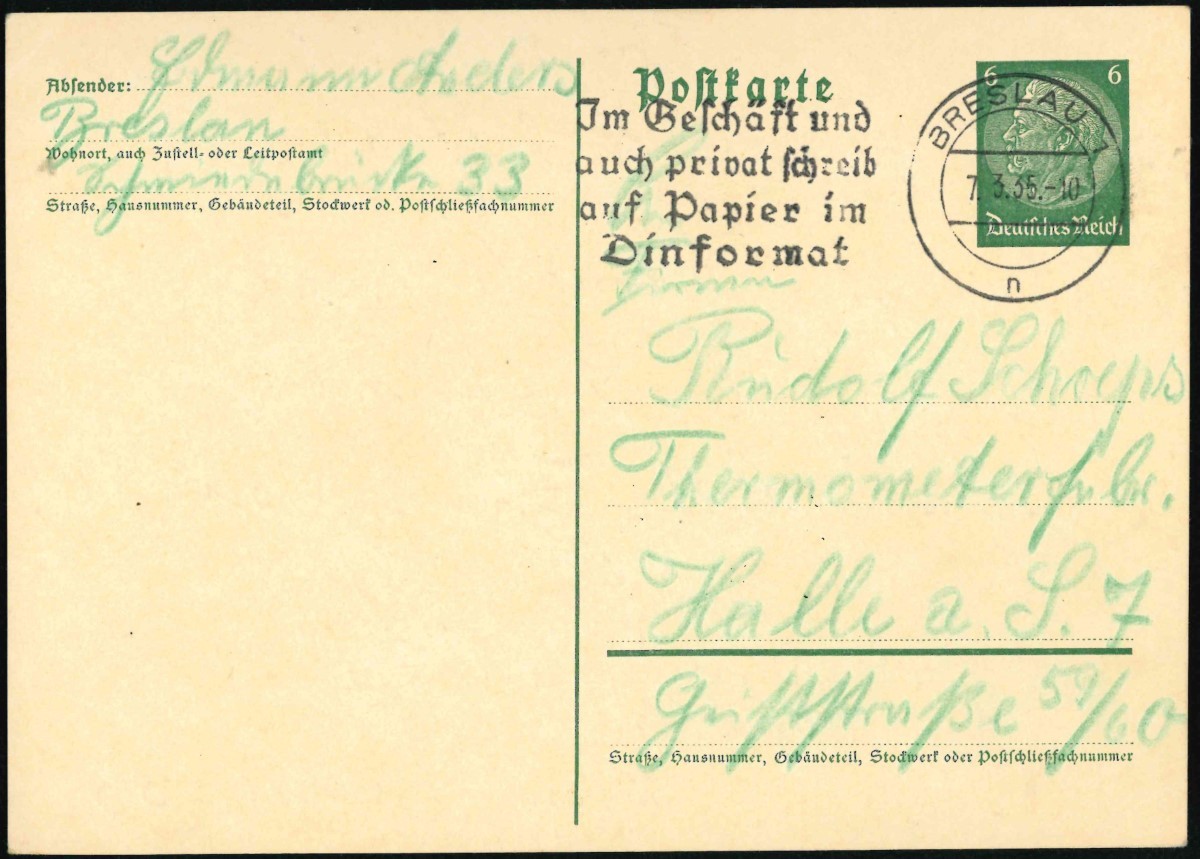 Absender: Edmann Anders
Breslau
Wohnort, auch Zustell- oder Leitpostamt
Schmiedebrücke 33
Straße, Hausnummer, Gebäudeteil, Stockwerk od. Postschließfachnummer
Postkarte
Im Geschäft und
auch privat schreib
auf Papier im
Dinformat
6 6
Deutsches Reich
BRESLAU 1
7.3.35.-10
n
Firma
Rudolf Schoeps
Thermometerfabr.
Halle a. S. 7
Geiststraße 59/60
Straße, Hausnummer, Gebäudeteil, Stockwerk oder Postschließfachnummer